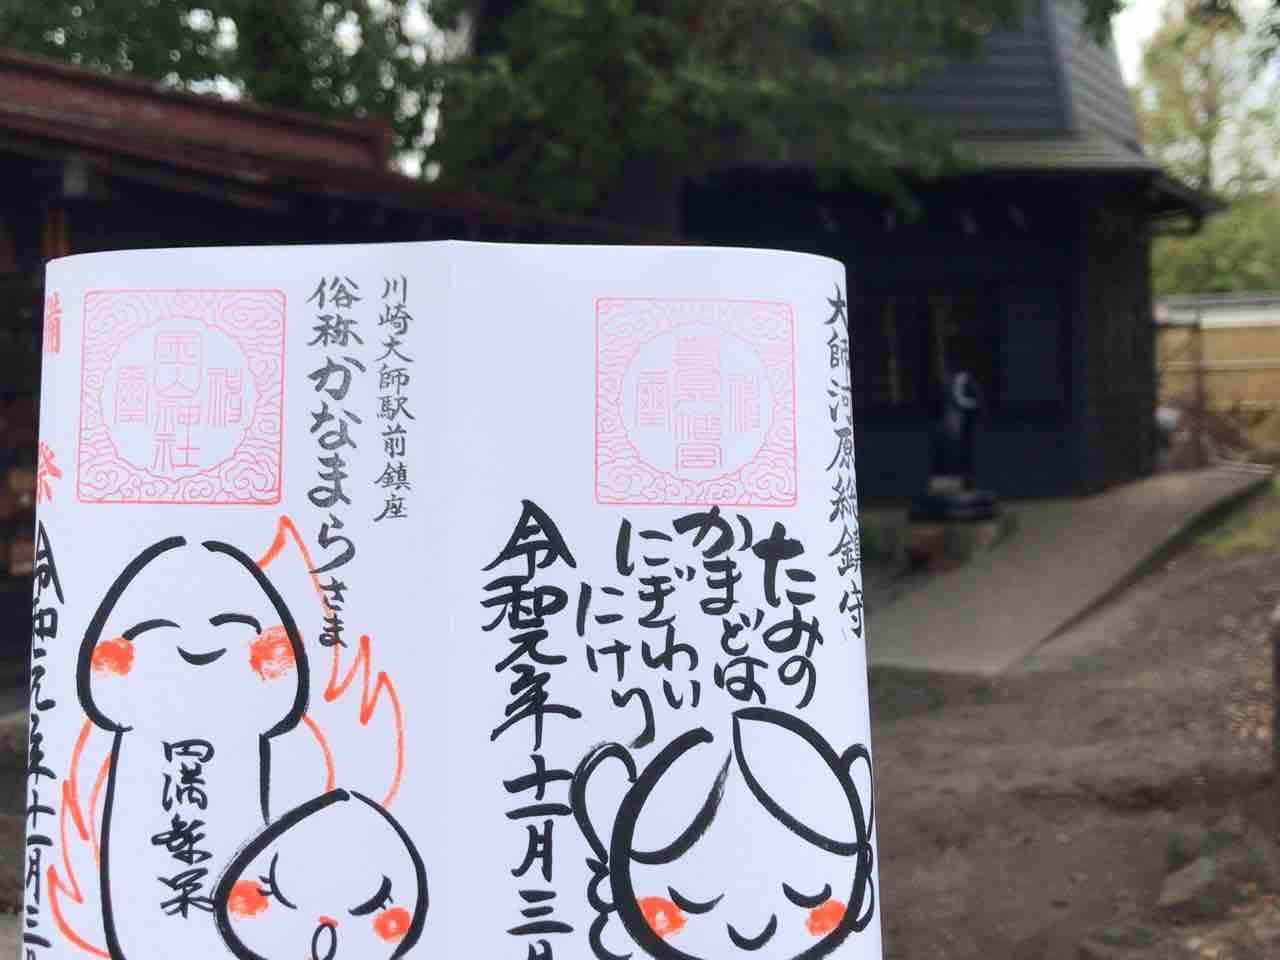 大師河原総鎮守
たみの
かまどは
にぎわい
にけり
令和元年十一月三日
川崎大師駅前鎮座
俗称かなまらさま
神社
円満
令和元年十一月三日